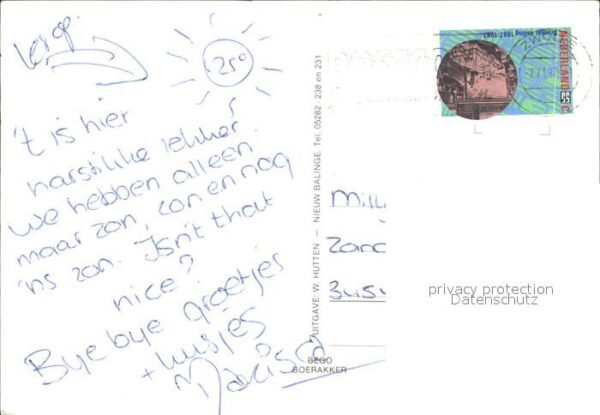 25°
't is hier
harstikke lekker.
we hebben alleen
maar zon, zon en nog
'ns zon. Isn't that
nice?
Bye bye groetjes
+ kusjes
UITGAVE: W. HUTTEN — NIEUW BALINGE. Tel. 05282 - 238 en 231
BEGO
BOERAKKER
NEDERLAND
55 c
Veiling 1887-1987
privacy protection
Datenschutz